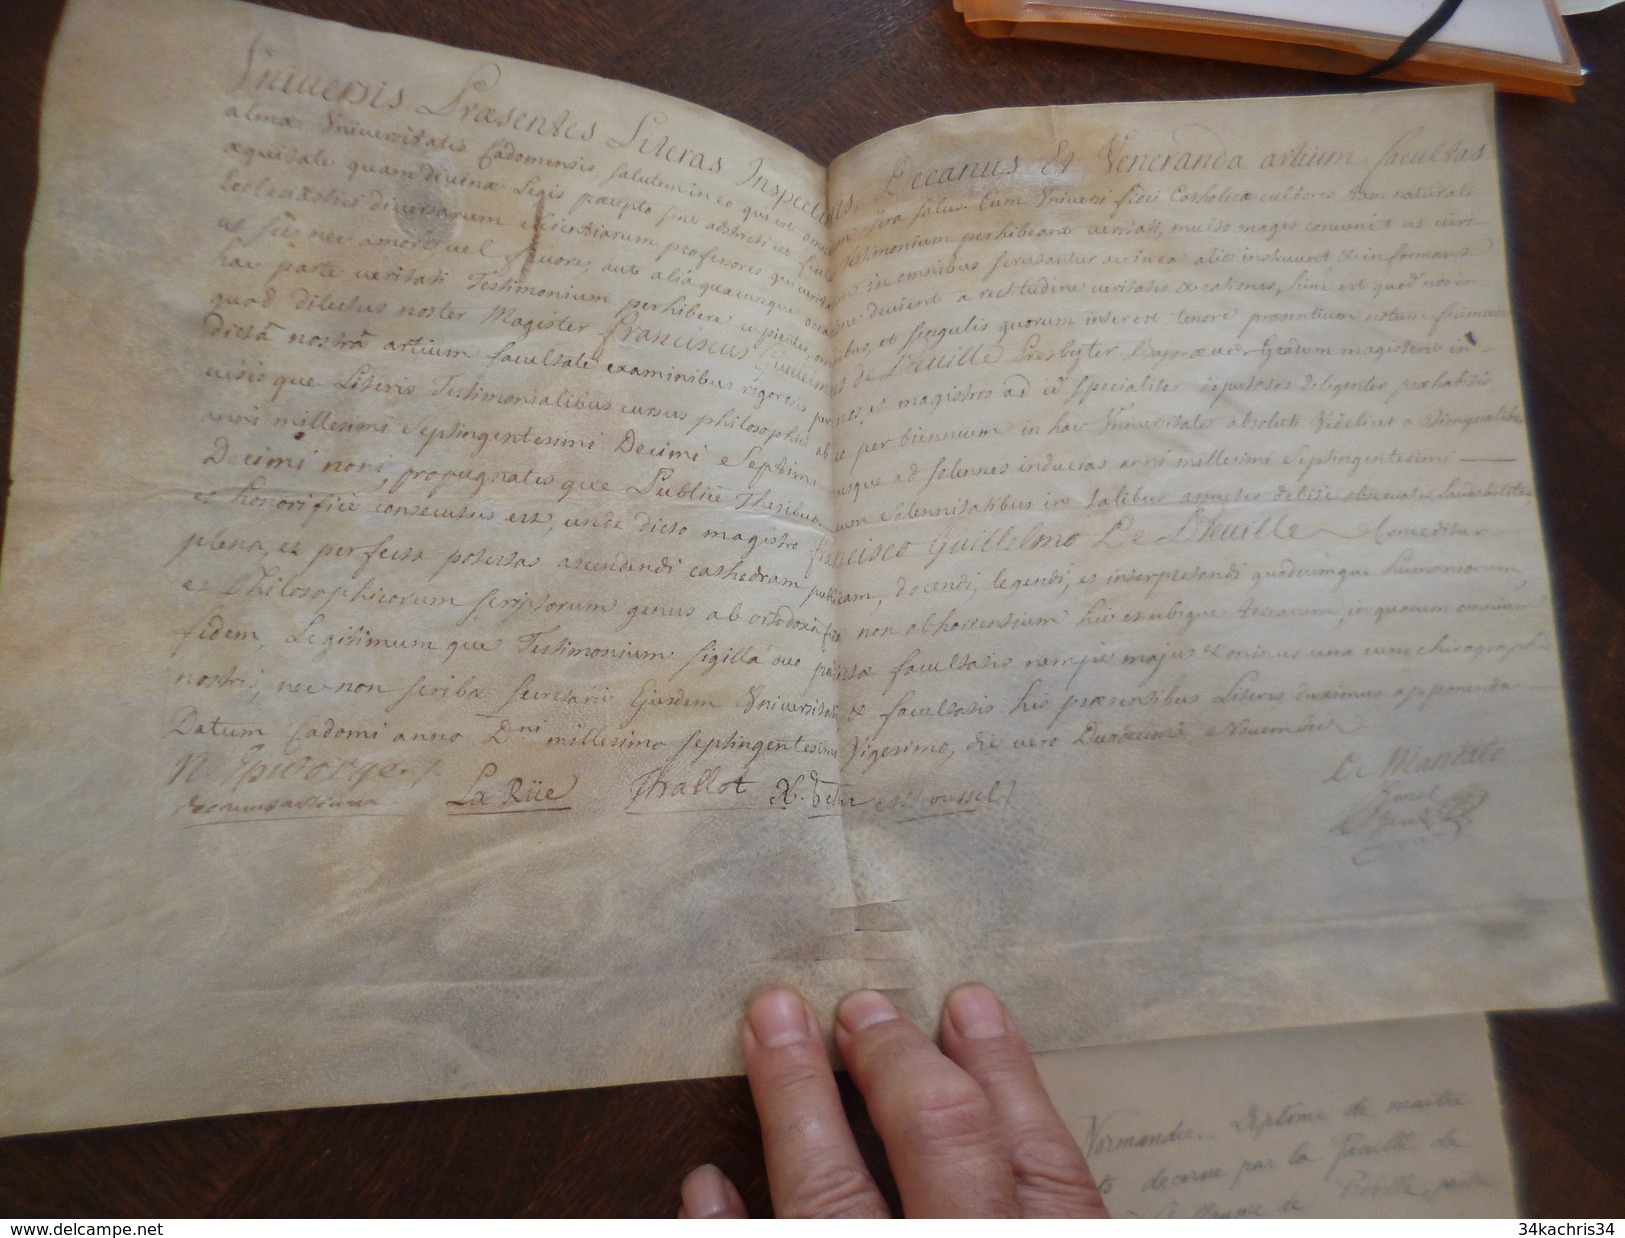 Universis Præsentes Literas Inspecturis, Decanus Et Veneranda artium facultas
almæ Universitatis Cadomensis, salutem in eo qui est omnium vera salus. Cum Universi fidei Catholicæ cultores tam naturali
æquitate quam divinæ Legis præcepto sint adstricti ut testimonium perhibeant veritati, multo magis convenit ut viri
Ecclesiastici diversarum scientiarum professores qui veritatem in omnibus scrutantur ac in ea alios instruunt, & informant
ut sic nec amore vel favore, aut aliâ quacunque devient a rectitudine veritatis & rationis, hinc est quod nos in
hac parte veritati Testimonium perhibere cupientes, omnibus, et singulis quorum interest tenore præsentium notum facimus
quod dilectus noster Magister franciscus Guillelmus de Preville Presbyter Gradum magisterii in
dictâ nostrâ artium facultate examinibus rigorosis per nos, et magistros ad id specialiter deputatos diligenter præhabitis,
visisque Literis Testimonialibus cursus philosophici ab eo per biennium in hac Universitate absoluti Videlicet a Dionysialibus
anni millesimi Septingentesimi Decimi Septimi usque ad solennes inducias anni millesimi Septingentesimi
Decimi noni, propugnatisque Publicè Thesibus cum solennitatibus in talibus assuetis debitè observatis Laudabiliter,
et honorificè consecutus est, unde dicto magistro francisco Guillelmo De Preville Conceditur
plena, et perfecta potestas ascendendi cathedram publicam, docendi, legendi, et interpretandi quodcumque humaniorum,
et Philosophicorum scriptorum genus ab ortodoxâ fide non abhorrentium hic et ubique terrarum, in quorum omnium
fidem, Legitimumque Testimonium sigilla duo prædictæ facultatis nempe majus & minus una cum chirographis
nostris, nec non scribæ secretarii Ejusdem Universitatis & facultatis his præsentibus Literis duximus apponenda
Datum Cadomi anno Dni millesimo septingentesimo Vigesimo, die vero Duodecimâ Novembris
De Mandato
decanus artium La Rüe Thallot Roussel
Normandie. Diplôme de maître
décerné par la Faculté de
Guillaume de Préville, prêtre
www.delcampe.net
34kachris34